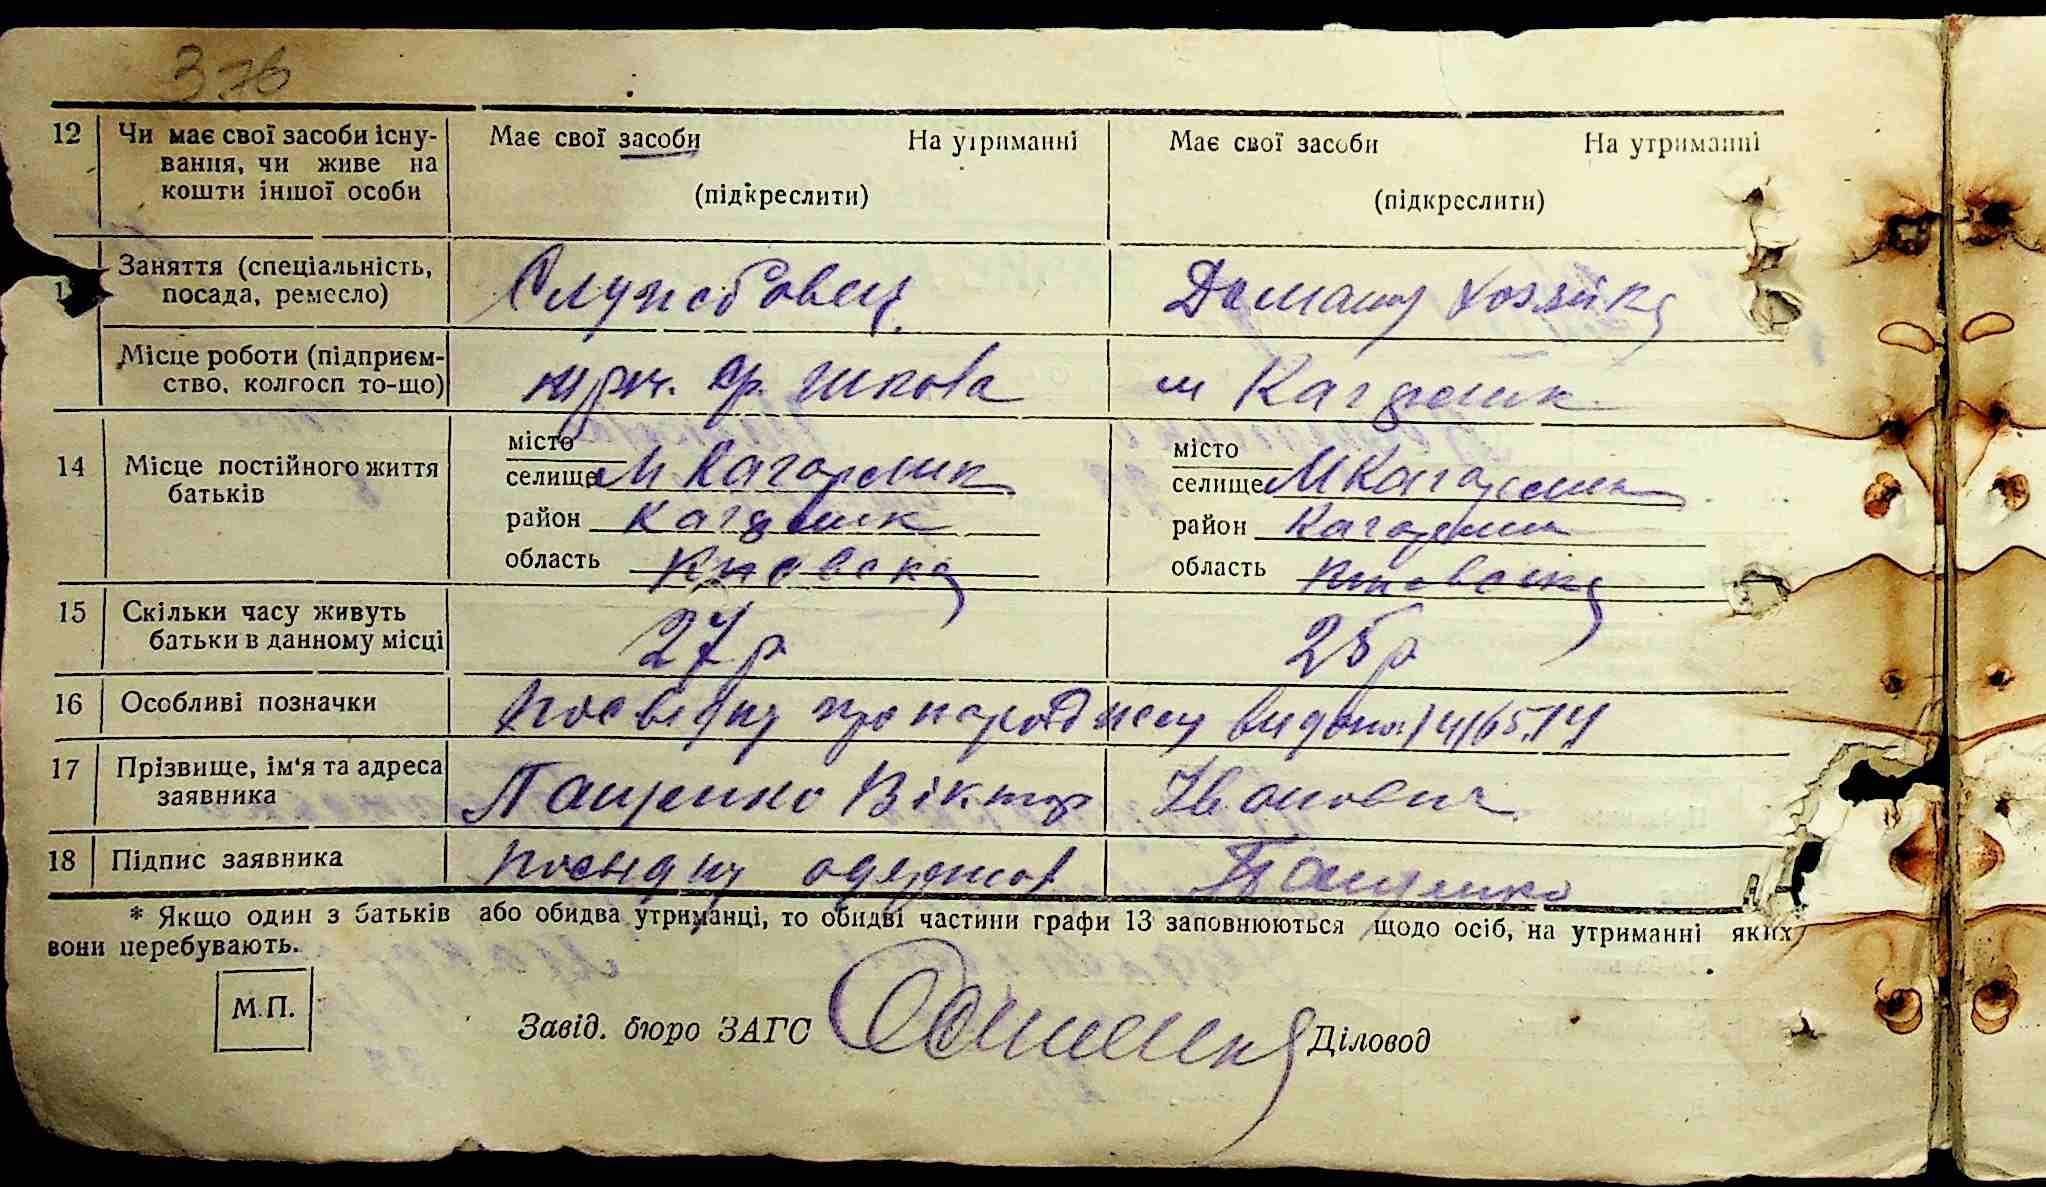 376
12 Чи має свої засоби існу- Має свої засоби На утриманні Має свої засоби На утриманні
вання, чи живе на
кошти іншої особи (підкреслити) (підкреслити)
Заняття (спеціальність, Службовец Домашня хозяйка
посада, ремесло)
Місце роботи (підприєм- ср. школа м Кагарлик
ство, колгосп то-що)
14 Місце постійного життя місто місто
батьків селище М Кагарлик селище М Кагарлик
район Кагарлик район Кагарлик
область Киевска область Киевска
15 Скільки часу живуть 27 р 25 р
батьки в данному місці
16 Особливі позначки посвідку про народженя видано
17 Прізвище, ім'я та адреса Пащенко Віктор Іванович
заявника
18 Підпис заявника посвідку одержав Пащенко
* Якщо один з батьків або обидва утриманці, то обидві частини графи 13 заповнюються щодо осіб, на утриманні яких
вони перебувають.
М.П.
Завід. бюро ЗАГС Діловод